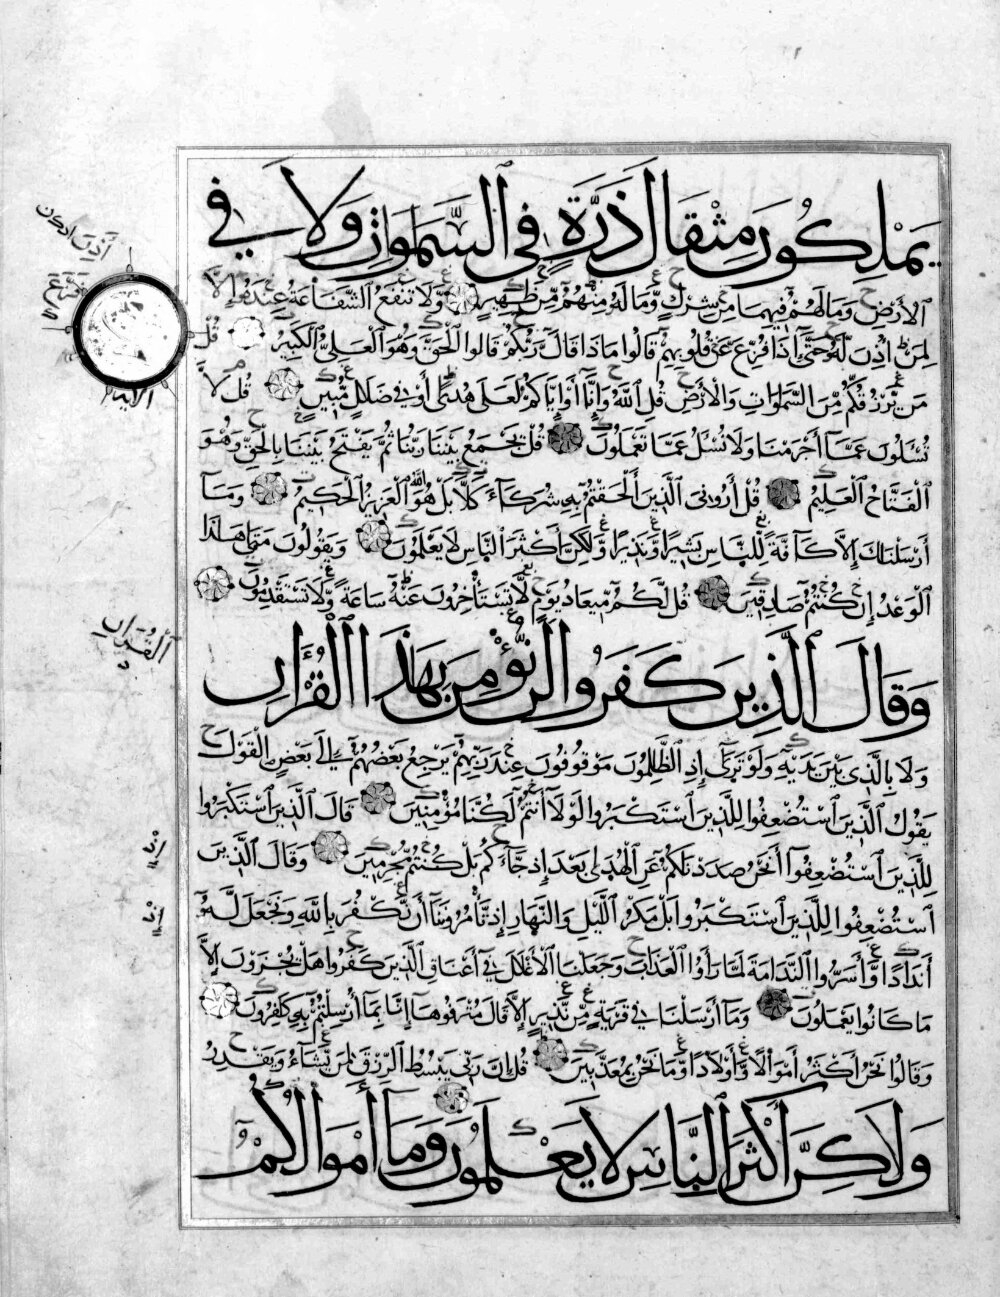 يَمْلِكُونَ مِثْقَالَ ذَرَّةٍ فِي ٱلسَّمَٰوَاتِ وَلَا فِي
ٱلْأَرْضِ وَمَا لَهُمْ فِيهِمَا مِن شِرْكٍ وَمَا لَهُ مِنْهُمْ مِّن ظَهِيرٍ وَلَا تَنفَعُ الشَّفَاعَةُ عِندَهُ إِلَّا
لِمَنْ أَذِنَ لَهُ حَتَّىٰ إِذَا فُزِّعَ عَن قُلُوبِهِمْ قَالُوا مَاذَا قَالَ رَبُّكُمْ قَالُوا الْحَقَّ وَهُوَ ٱلْعَلِيُّ ٱلْكَبِيرُ قُلْ
مَن يَرْزُقُكُم مِّنَ السَّمَٰوَاتِ وَالْأَرْضِ قُلِ ٱللَّهُ وَإِنَّا أَوْ إِيَّاكُمْ لَعَلَىٰ هُدًى أَوْ فِي ضَلَالٍ مُّبِينٍ قُل لَّا
تُسْـَٔلُونَ عَمَّا أَجْرَمْنَا وَلَا نُسْـَٔلُ عَمَّا تَعْمَلُونَ قُلْ يَجْمَعُ بَيْنَنَا رَبُّنَا ثُمَّ يَفْتَحُ بَيْنَنَا بِالْحَقِّ وَهُوَ
ٱلْفَتَّاحُ ٱلْعَلِيمُ قُلْ أَرُونِيَ ٱلَّذِينَ أَلْحَقْتُم بِهِ شُرَكَآءَ كَلَّا بَلْ هُوَ ٱللَّهُ ٱلْعَزِيزُ ٱلْحَكِيمُ وَمَا
أَرْسَلْنَاكَ إِلَّا كَافَّةً لِّلنَّاسِ بَشِيرًا وَنَذِيرًا وَلَٰكِنَّ أَكْثَرَ ٱلنَّاسِ لَا يَعْلَمُونَ وَيَقُولُونَ مَتَىٰ هَٰذَا
ٱلْوَعْدُ إِن كُنتُمْ صَادِقِينَ قُل لَّكُم مِّيعَادُ يَوْمٍ لَّا تَسْتَأْخِرُونَ عَنْهُ سَاعَةً وَلَا تَسْتَقْدِمُونَ
وَقَالَ ٱلَّذِينَ كَفَرُوا لَن نُّؤْمِنَ بِهَٰذَا ٱلْقُرْءَانِ
وَلَا بِالَّذِي بَيْنَ يَدَيْهِ وَلَوْ تَرَىٰ إِذِ ٱلظَّالِمُونَ مَوْقُوفُونَ عِندَ رَبِّهِمْ يَرْجِعُ بَعْضُهُمْ إِلَىٰ بَعْضٍ الْقَوْلَ
يَقُولُ ٱلَّذِينَ ٱسْتُضْعِفُوا لِلَّذِينَ ٱسْتَكْبَرُوا لَوْلَا أَنتُمْ لَكُنَّا مُؤْمِنِينَ قَالَ ٱلَّذِينَ ٱسْتَكْبَرُوا
لِلَّذِينَ ٱسْتُضْعِفُوا أَنَحْنُ صَدَدْنَاكُمْ عَنِ ٱلْهُدَىٰ بَعْدَ إِذْ جَآءَكُم بَلْ كُنتُم مُّجْرِمِينَ وَقَالَ ٱلَّذِينَ
ٱسْتُضْعِفُوا لِلَّذِينَ ٱسْتَكْبَرُوا بَلْ مَكْرُ ٱللَّيْلِ وَٱلنَّهَارِ إِذْ تَأْمُرُونَنَا أَن نَّكْفُرَ بِاللَّهِ وَنَجْعَلَ لَهُ
أَندَادًا وَأَسَرُّوا ٱلنَّدَامَةَ لَمَّا رَأَوُا ٱلْعَذَابَ وَجَعَلْنَا ٱلْأَغْلَالَ فِي أَعْنَاقِ ٱلَّذِينَ كَفَرُوا هَلْ يُجْزَوْنَ إِلَّا
مَا كَانُوا يَعْمَلُونَ وَمَا أَرْسَلْنَا فِي قَرْيَةٍ مِّن نَّذِيرٍ إِلَّا قَالَ مُتْرَفُوهَا إِنَّا بِمَا أُرْسِلْتُم بِهِ كَافِرُونَ
وَقَالُوا نَحْنُ أَكْثَرُ أَمْوَالًا وَأَوْلَادًا وَمَا نَحْنُ بِمُعَذَّبِينَ قُلْ إِنَّ رَبِّي يَبْسُطُ ٱلرِّزْقَ لِمَن يَشَآءُ وَيَقْدِرُ
وَلَٰكِنَّ أَكْثَرَ ٱلنَّاسِ لَا يَعْلَمُونَ وَمَا أَمْوَالُكُمْ
ٱلْقُرْءَانِ